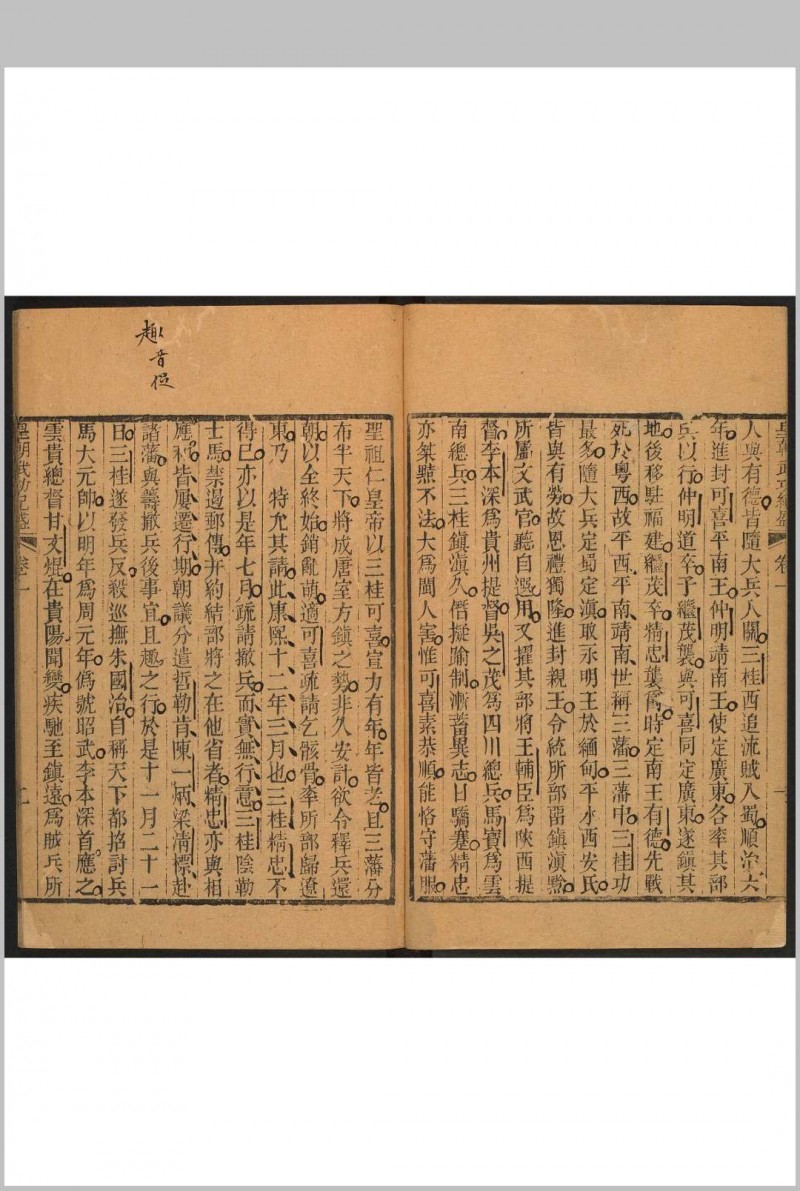 人與有德皆隨大兵入關三桂西追流賊入蜀順治六
年進封可喜平南王仲明靖南王使定廣東各率其部
兵以行仲明道卒子繼茂襲與可喜同定廣東遂鎮其
地後移駐福建繼茂卒精忠襲爲時定南王有德先戰
死於粵西故平西平南靖南世稱三藩三藩中三桂功
最多隨大兵定蜀定滇取永明王於緬甸平水西安氏
皆與有勞故恩禮獨隆進封親王令統所部留鎮滇黔
所屬文武官聽自選用又擢其部將王輔臣爲陝西提
督李本深爲貴州提督吳之茂爲四川總兵馬寶爲雲
南總兵三桂鎮滇久僭擬踰制漸蓄異志日驕蹇精忠
亦桀黠不法大爲閩人害惟可喜素恭順能恪守藩服
聖祖仁皇帝以三桂可喜宣力有年年皆老且三藩分
布半天下將成唐室方鎮之勢非久安計欲令釋兵還
朝以全終始銷亂萌適可喜疏請乞骸骨率所部歸遼
東乃 特允其請此康熙十二年三月也三桂精忠不
得已亦以是年七月疏請撤兵而實無行意三桂陰勒
士馬禁遏郵傳并約結部將之在他省者精忠亦與相
應和皆屢遷行期朝議分遣哲勒肯陳一炳梁清標赴
諸藩與籌撤兵後事宜且趣之行於是十一月二十一
日三桂遂發兵反殺巡撫朱國治自稱天下都招討兵
馬大元帥以明年爲周元年僞號昭武李本深首應之
雲貴總督甘文焜在貴陽聞變疾馳至鎮遠爲賊兵所
趣音促
卷一